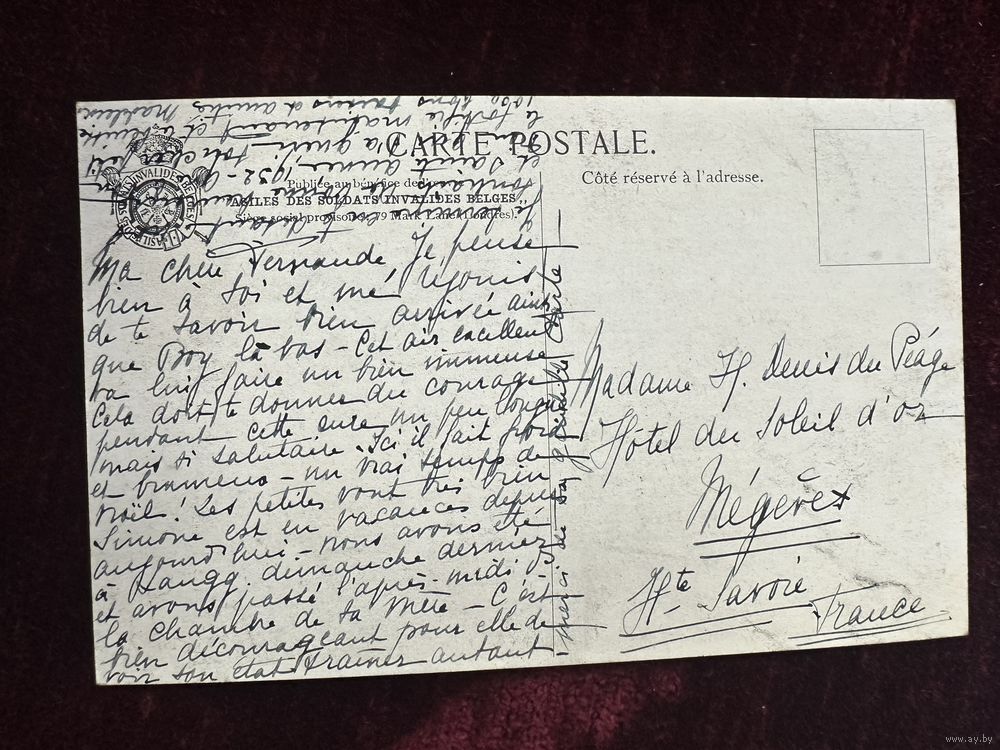 CARTE POSTALE.
Publiée au bénéfice de l'œuvre
"ASILES DES SOLDATS INVALIDES BELGES"
Siège social provisoire: (79 Mark Lane, Londres).
Côté réservé à l'adresse.
Ma chère Fernande, Je pense
bien à toi et me réjouis
de te savoir bien arrivée ainsi
que Boy là bas - Cet air excellent
va lui faire un bien immense
Cela doit te donner du courage
pendant cette cure un peu longue
mais si salutaire. Ici il fait froid
et brumeux - un vrai temps de
Noël! Les petites vont très bien
Simone est en vacances depuis
aujourd'hui - nous avons été
à dimanche dernier
et avons passé l'après-midi
la chambre de ta Mère - C'est
bien décourageant pour elle de
voir son état traîner autant
Merci de sa gentille carte
Je termine
souhaitant bonne
et sainte année, 1932 -
qu'il
le fortifie maintenant et
1000 bons baisers et amitiés
Madame H. Denis du Péage
Hôtel du Soleil d'or
Mégève
Hte Savoie
France
www.ay.by